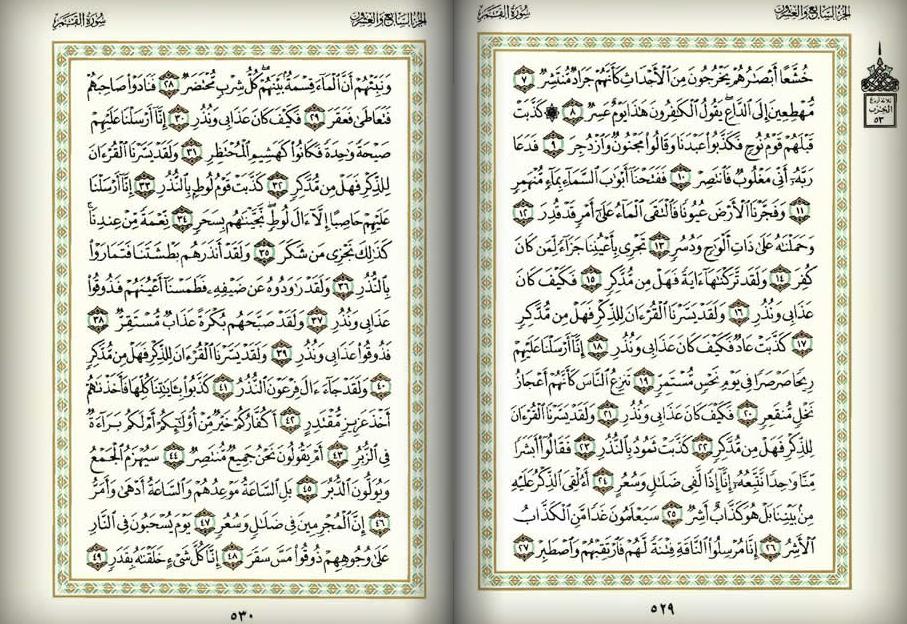 سُورَةُ القَمَرِ
الجزء السابع والعشرون
خُشَّعًا أَبْصَٰرُهُمْ يَخْرُجُونَ مِنَ ٱلْأَجْدَاثِ كَأَنَّهُمْ جَرَادٌ مُّنتَشِرٌ ٧
مُّهْطِعِينَ إِلَى ٱلدَّاعِ يَقُولُ ٱلْكَٰفِرُونَ هَٰذَا يَوْمٌ عَسِرٌ ٨ ۞ كَذَّبَتْ
قَبْلَهُمْ قَوْمُ نُوحٍ فَكَذَّبُوا۟ عَبْدَنَا وَقَالُوا۟ مَجْنُونٌ وَٱزْدُجِرَ ٩ فَدَعَا
رَبَّهُۥٓ أَنِّى مَغْلُوبٌ فَٱنتَصِرْ ١٠ فَفَتَحْنَآ أَبْوَٰبَ ٱلسَّمَآءِ بِمَآءٍ مُّنْهَمِرٍ
١١ وَفَجَّرْنَا ٱلْأَرْضَ عُيُونًا فَٱلْتَقَى ٱلْمَآءُ عَلَىٰٓ أَمْرٍ قَدْ قُدِرَ ١٢
وَحَمَلْنَٰهُ عَلَىٰ ذَاتِ أَلْوَٰحٍ وَدُسُرٍ ١٣ تَجْرِى بِأَعْيُنِنَا جَزَآءً لِّمَن كَانَ
كُفِرَ ١٤ وَلَقَد تَّرَكْنَٰهَآ ءَايَةً فَهَلْ مِن مُّدَّكِرٍ ١٥ فَكَيْفَ كَانَ
عَذَابِى وَنُذُرِ ١٦ وَلَقَدْ يَسَّرْنَا ٱلْقُرْءَانَ لِلذِّكْرِ فَهَلْ مِن مُّدَّكِرٍ
١٧ كَذَّبَتْ عَادٌ فَكَيْفَ كَانَ عَذَابِى وَنُذُرِ ١٨ إِنَّآ أَرْسَلْنَا عَلَيْهِمْ
رِيحًا صَرْصَرًا فِى يَوْمِ نَحْسٍ مُّسْتَمِرٍّ ١٩ تَنزِعُ ٱلنَّاسَ كَأَنَّهُمْ أَعْجَازُ
نَخْلٍ مُّنقَعِرٍ ٢٠ فَكَيْفَ كَانَ عَذَابِى وَنُذُرِ ٢١ وَلَقَدْ يَسَّرْنَا ٱلْقُرْءَانَ
لِلذِّكْرِ فَهَلْ مِن مُّدَّكِرٍ ٢٢ كَذَّبَتْ ثَمُودُ بِٱلنُّذُرِ ٢٣ فَقَالُوٓا۟ أَبَشَرًا
مِّنَّا وَٰحِدًا نَّتَّبِعُهُۥٓ إِنَّآ إِذًا لَّفِى ضَلَٰلٍ وَسُعُرٍ ٢٤ أَءُلْقِىَ ٱلذِّكْرُ عَلَيْهِ
مِنۢ بَيْنِنَا بَلْ هُوَ كَذَّابٌ أَشِرٌ ٢٥ سَيَعْلَمُونَ غَدًا مَّنِ ٱلْكَذَّابُ
ٱلْأَشِرُ ٢٦ إِنَّا مُرْسِلُوا۟ ٱلنَّاقَةِ فِتْنَةً لَّهُمْ فَٱرْتَقِبْهُمْ وَٱصْطَبِرْ ٢٧
٥٢٩
ثلاثة أرباع
الحزب
٥٣
سُورَةُ القَمَرِ
الجزء السابع والعشرون
وَنَبِّئْهُمْ أَنَّ ٱلْمَآءَ قِسْمَةٌۢ بَيْنَهُمْ كُلُّ شِرْبٍ مُّحْتَضَرٌ ٢٨ فَنَادَوْا۟ صَاحِبَهُمْ
فَتَعَاطَىٰ فَعَقَرَ ٢٩ فَكَيْفَ كَانَ عَذَابِى وَنُذُرِ ٣٠ إِنَّآ أَرْسَلْنَا عَلَيْهِمْ
صَيْحَةً وَٰحِدَةً فَكَانُوا۟ كَهَشِيمِ ٱلْمُحْتَظِرِ ٣١ وَلَقَدْ يَسَّرْنَا ٱلْقُرْءَانَ
لِلذِّكْرِ فَهَلْ مِن مُّدَّكِرٍ ٣٢ كَذَّبَتْ قَوْمُ لُوطٍۭ بِٱلنُّذُرِ ٣٣ إِنَّآ أَرْسَلْنَا
عَلَيْهِمْ حَاصِبًا إِلَّآ ءَالَ لُوطٍ نَّجَّيْنَٰهُم بِسَحَرٍ ٣٤ نِّعْمَةً مِّنْ عِندِنَا
كَذَٰلِكَ نَجْزِى مَن شَكَرَ ٣٥ وَلَقَدْ أَنذَرَهُم بَطْشَتَنَا فَتَمَارَوْا۟
بِٱلنُّذُرِ ٣٦ وَلَقَدْ رَٰوَدُوهُ عَن ضَيْفِهِۦ فَطَمَسْنَآ أَعْيُنَهُمْ فَذُوقُوا۟
عَذَابِى وَنُذُرِ ٣٧ وَلَقَدْ صَبَّحَهُم بُكْرَةً عَذَابٌ مُّسْتَقِرٌّ ٣٨
فَذُوقُوا۟ عَذَابِى وَنُذُرِ ٣٩ وَلَقَدْ يَسَّرْنَا ٱلْقُرْءَانَ لِلذِّكْرِ فَهَلْ مِن مُّدَّكِرٍ
٤٠ وَلَقَدْ جَآءَ ءَالَ فِرْعَوْنَ ٱلنُّذُرُ ٤١ كَذَّبُوا۟ بِـَٔايَٰتِنَا كُلِّهَا فَأَخَذْنَٰهُمْ
أَخْذَ عَزِيزٍ مُّقْتَدِرٍ ٤٢ أَكُفَّارُكُمْ خَيْرٌ مِّنْ أُو۟لَٰٓئِكُمْ أَمْ لَكُم بَرَآءَةٌ
فِى ٱلزُّبُرِ ٤٣ أَمْ يَقُولُونَ نَحْنُ جَمِيعٌ مُّنتَصِرٌ ٤٤ سَيُهْزَمُ ٱلْجَمْعُ
وَيُوَلُّونَ ٱلدُّبُرَ ٤٥ بَلِ ٱلسَّاعَةُ مَوْعِدُهُمْ وَٱلسَّاعَةُ أَدْهَىٰ وَأَمَرُّ
٤٦ إِنَّ ٱلْمُجْرِمِينَ فِى ضَلَٰلٍ وَسُعُرٍ ٤٧ يَوْمَ يُسْحَبُونَ فِى ٱلنَّارِ
عَلَىٰ وُجُوهِهِمْ ذُوقُوا۟ مَسَّ سَقَرَ ٤٨ إِنَّا كُلَّ شَىْءٍ خَلَقْنَٰهُ بِقَدَرٍ ٤٩
٥٣٠